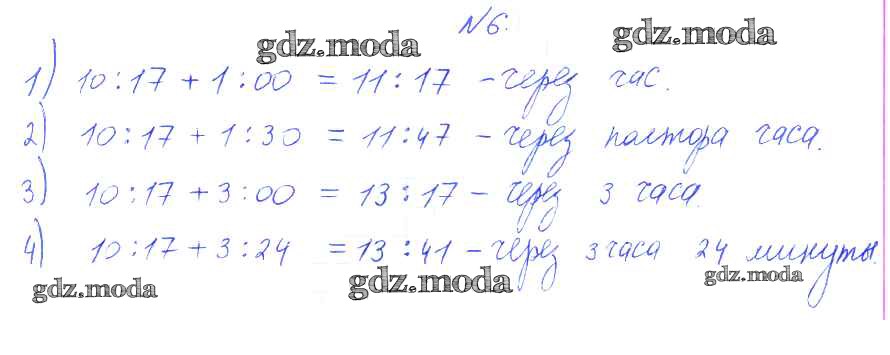 №6.
gdz.moda gdz.moda
1) 10:17 + 1:00 = 11:17 - через час.
2) 10:17 + 1:30 = 11:47 - через полтора часа.
3) 10:17 + 3:00 = 13:17 - через 3 часа.
4) 10:17 + 3:24 = 13:41 - через 3 часа 24 минуты.
gdz.moda gdz.moda gdz.moda